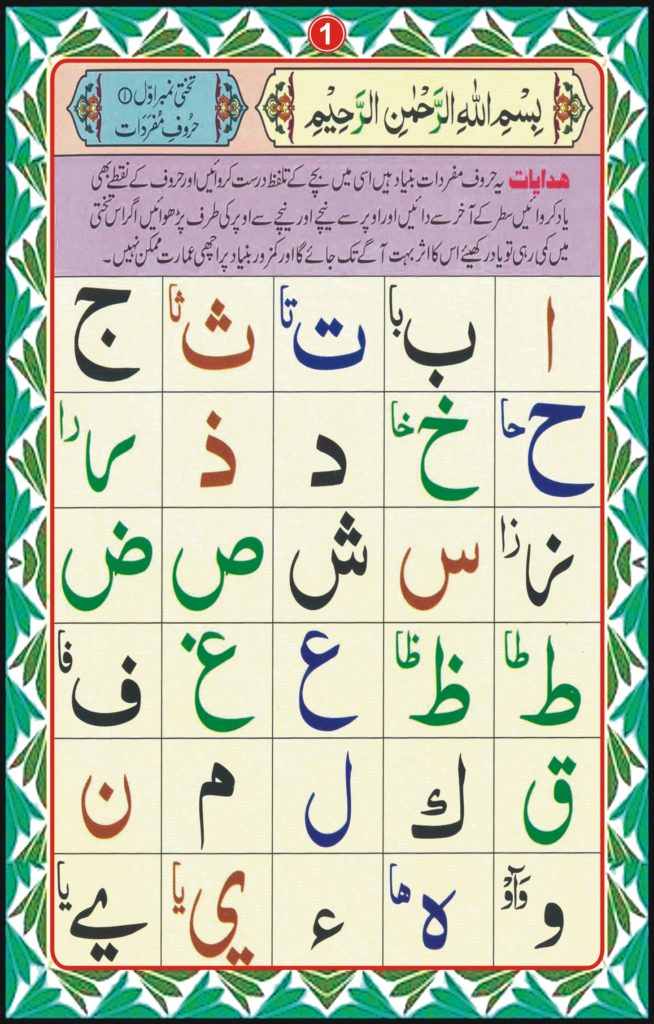 1
بِسْمِ اللهِ الرَّحْمٰنِ الرَّحِيْمِ
تختی نمبر اوّل ①
حُروفِ مُفرَدَات
ھدایات یہ حروف مفردات بنیاد ہیں اسی میں بچے کے تلفظ درست کروائیں اور حروف کے نقطے بھی
یاد کروائیں سطر کے آخر سے دائیں اور اوپر سے نیچے اور نیچے سے اوپر کی طرف پڑھوائیں اگر اس تختی
میں کمی رہی تو یاد رکھیئے اس کا اثر بہت آگے تک جائے گا اور کمزور بنیاد پر اچھی عمارت ممکن نہیں۔
ا ب با ت تا ث ثا ج
ح حا خ خا د ذ ر را
ز زا س ش ص ض
ط طا ظ ظا ع غ ف فا
ق ك ل م ن
و وَآوْ ہ ھا ء ي یا ے یا